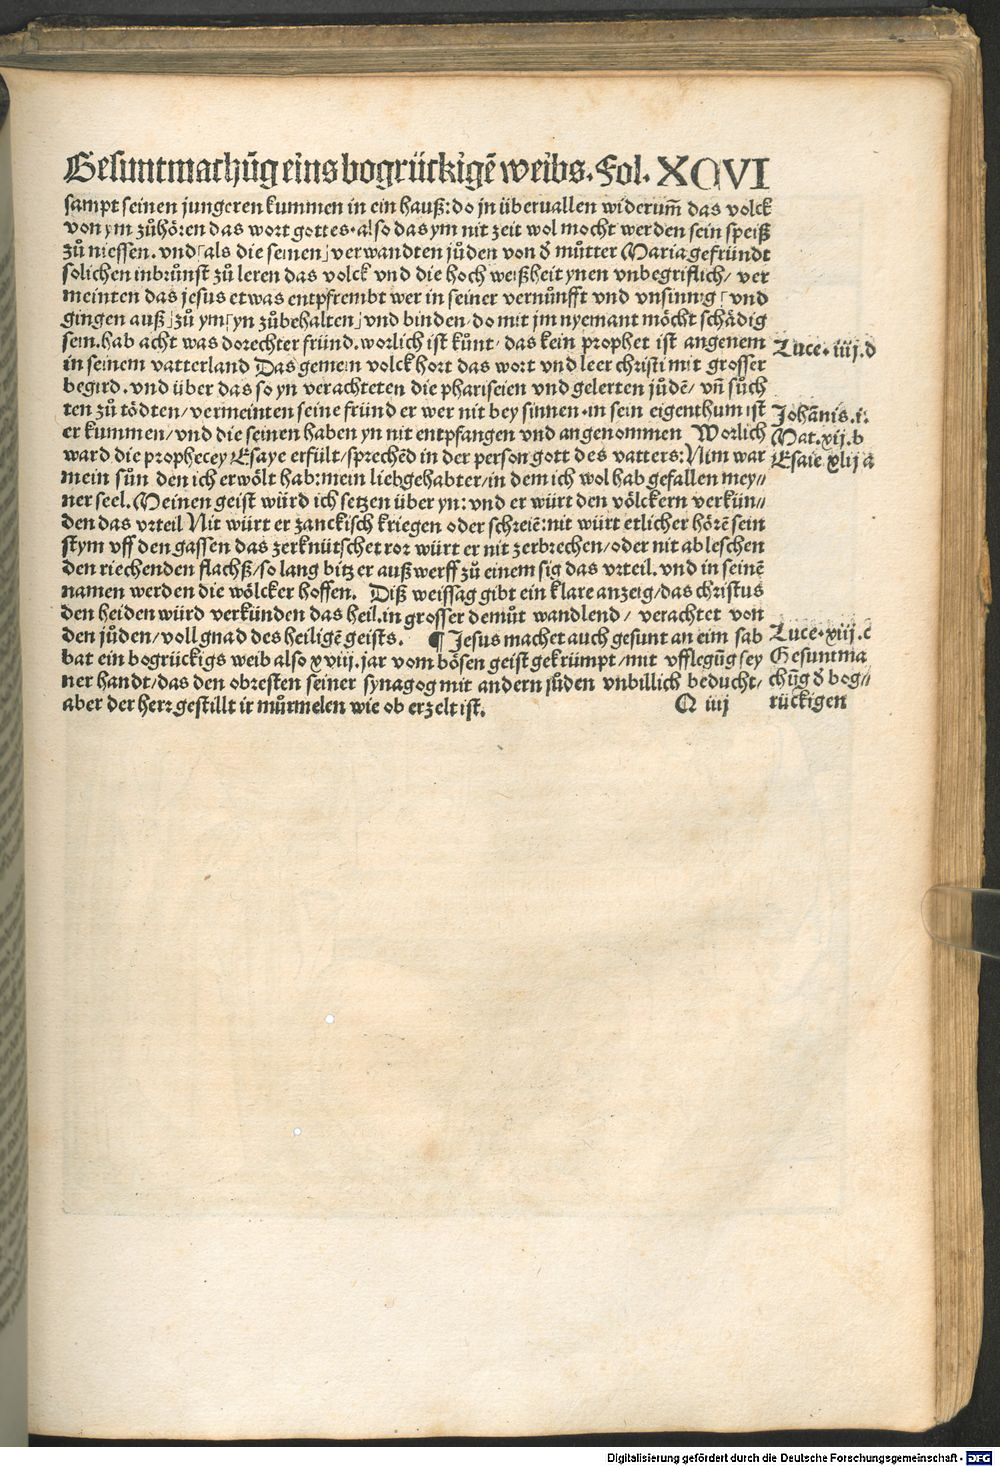 Gesuntmachūg eins bogrückigē weibs. Fol. XCVI
sampt seinen jungeren kummen in ein hauß: do jn überuallen widerum̄ das volck
von ym zůhören das wort gottes. also das ym nit zeit wol mocht werden sein speiß
zů niessen. vnd ⌈als die seinen⌋ verwandten jůden von d̕ můtter Maria gefründt
solichen inbrünst zů leren das volck vnd die hoch weißheit ynen vnbegriflich/ ver
meinten das jesus etwas entpfrembt wer in seiner vernůnfft vnd vnsinnig ⌈vnd
gingen auß⌋ zů ym ⌈yn zůbehalten⌋ vnd binden/ do mit jm nyemant möcht schädig
sein. hab acht was dorechter fründ. worlich ist kůnt/ das kein prophet ist angenem
in seinem vatterland Das gemein volck hort das wort vnd leer christi mit grosser
begird. vnd über das so yn verachteten die phariseien vnd gelerten jůdē/ vn̄ sůch
ten zů tödten/ vermeinten seine fründ er wer nit bey sinnen. in sein eigenthum ist
er kummen/ vnd die seinen haben yn nit entpfangen vnd angenommen Worlich
ward die prophecey Esaye erfült/ sprechēd in der person gott des vatters: Nim war
mein sůn den ich erwölt hab: mein liebgehabter/ in dem ich wol hab gefallen mey//
ner seel. Meinen geist würd ich setzen über yn: vnd er würt den völckern verkün//
den das vrteil Nit würt er zanckisch kriegen oder schreiē: nit würt etlicher hörē sein
stym vff den gassen das zerknütschet ror würt er nit zerbrechen/ oder nit ableschen
den riechenden flachß/ so lang bitz er außwerff zů einem sig das vrteil. vnd in seinē
namen werden die wölcker hoffen. Diß weissag gibt ein klare anzeig/ das christus
den heiden würd verkünden das heil. in grosser demůt wandlend/ verachtet von
den jůden/ voll gnad des heiligē geists. ¶ Jesus machet auch gesunt an eim sab
bat ein bogrückigs weib also xviij. jar vom bösen geist gekrümpt/ mit vfflegūg sey
ner handt/ das den obresten seiner synagog mit andern jůden vnbillich beducht/
aber der herr gestillt ir můrmelen wie ob erzelt ist.
Q iiij
Luce. iiij. d
Johānis. i.
Mat. xij. b
Esaie xlij a
Luce. xiij. c
Gesuntma
chūg d̕ bog//
rückigen
Digitalisierung gefördert durch die Deutsche Forschungsgemeinschaft - DFG